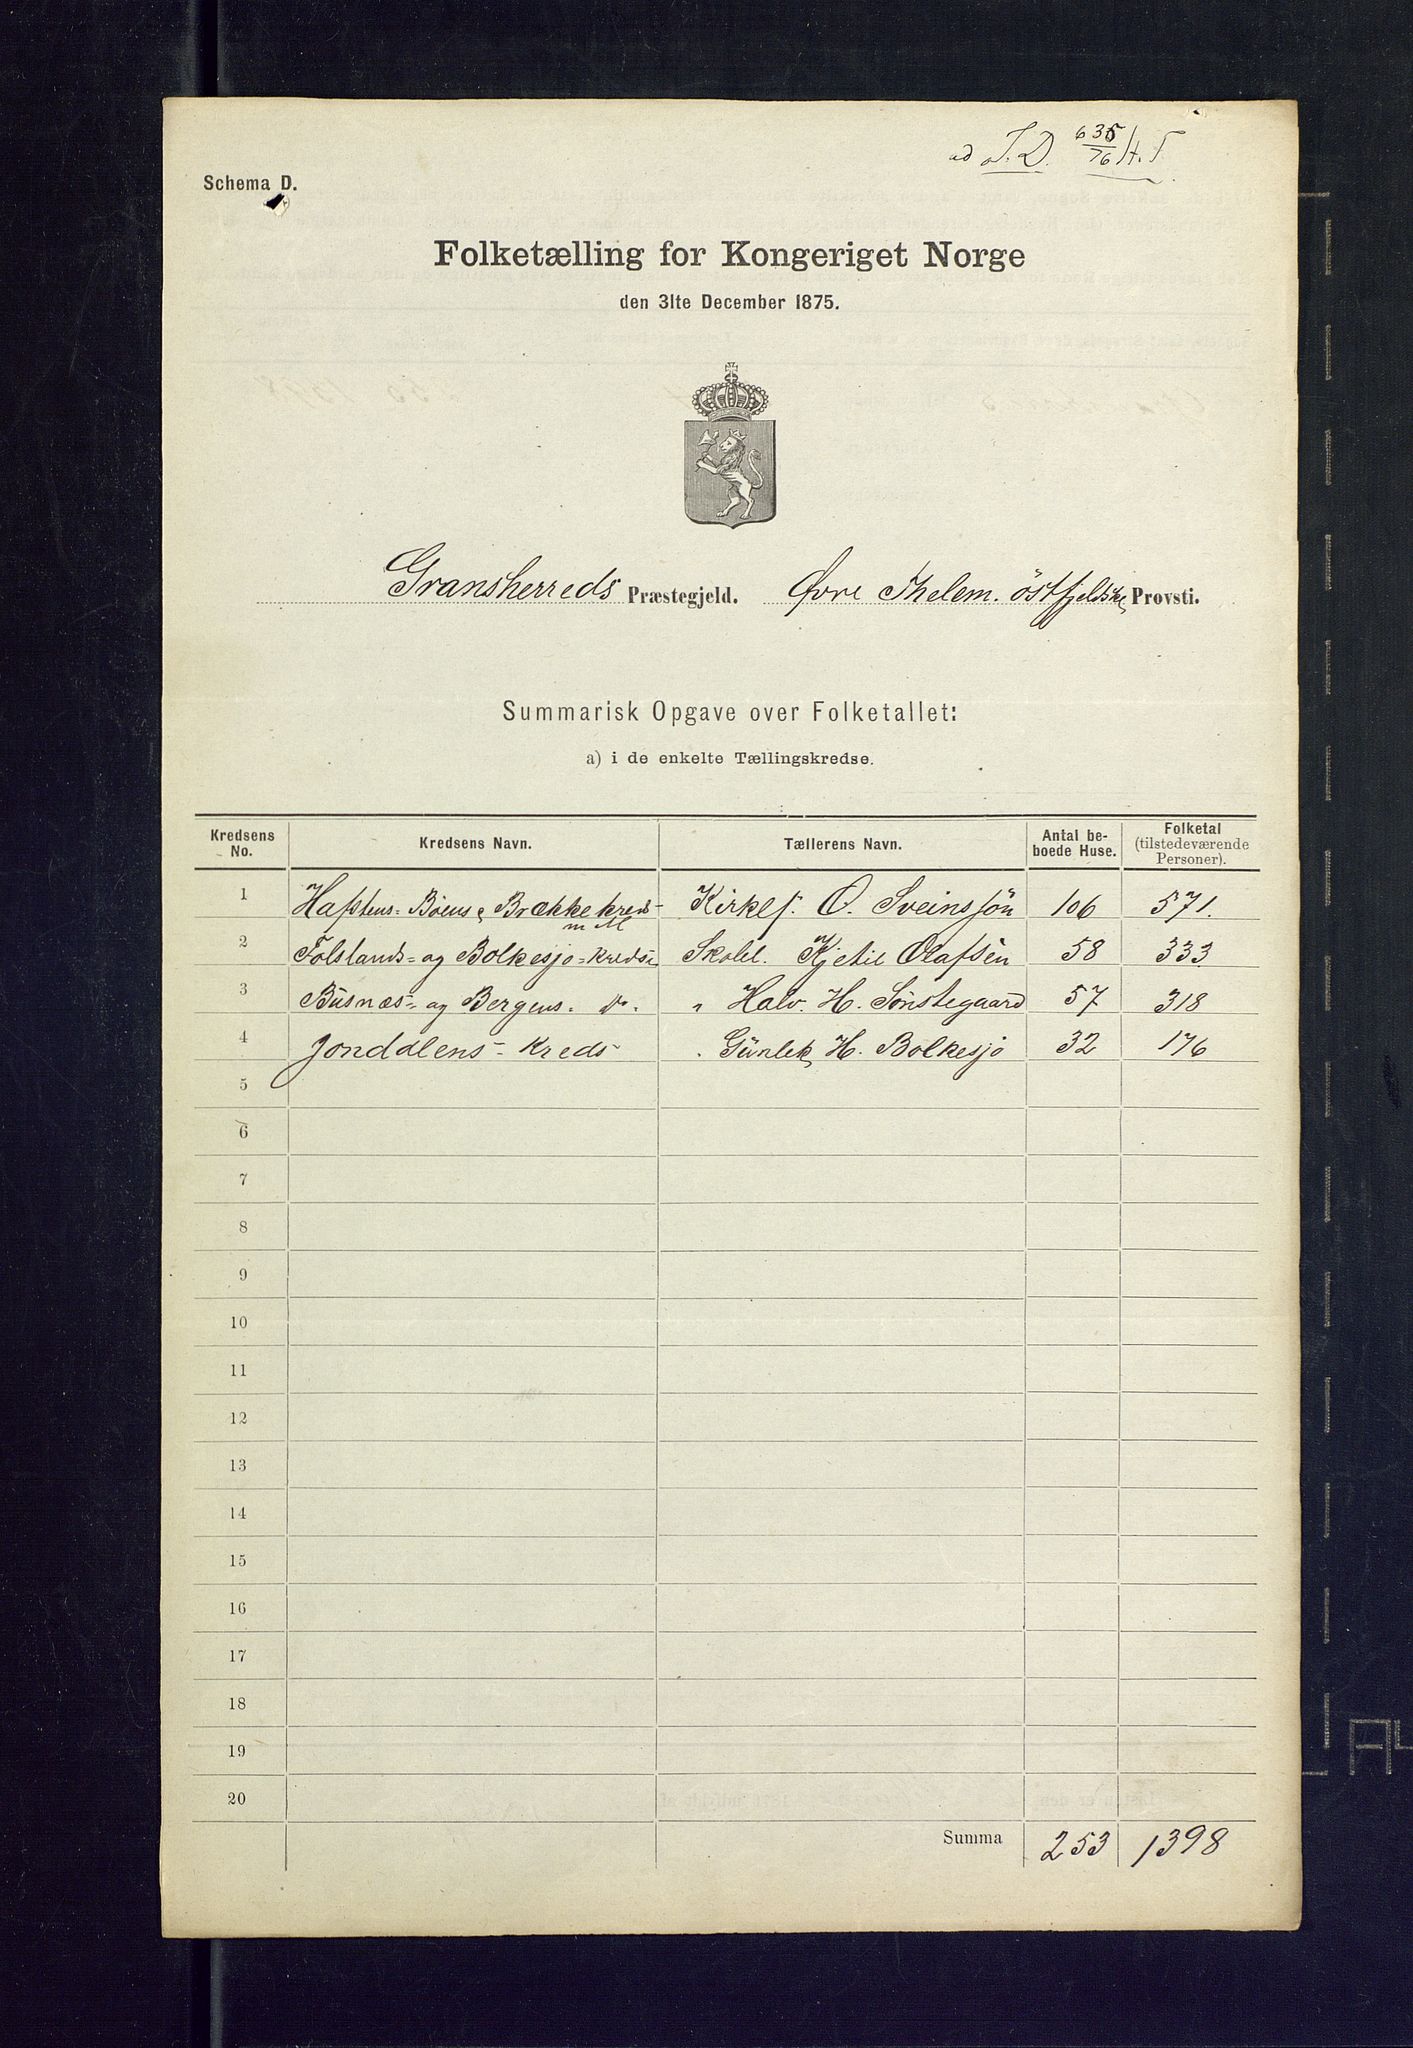 ad J. D. 635/76 H. T.
Schema D.
Folketælling for Kongeriget Norge
den 31te December 1875.
Gransherreds Præstegjeld. Øvre Thelem. östfjeldske Provsti.
Summarisk Opgave over Folketallet:
a) i de enkelte Tællingskredse.
Kredsens No. Kredsens Navn. Tællerens Navn. Antal beboede Huse. Folketal (tilstedeværende Personer).
1 Bøens Brække kreds Kirkes. O. Sveinssön 106 571.
2 Folslands- og Bolkesjo-Kredse Skolel. Kjetil Olafsen 58 333
3 Busnæs- og Bergens- Do. " Halv. H. Sønstegaard 57 318
4 Jondalens-Kreds " Gunlek H. Bolkesjo 32 176
5
6
7
8
9
10
11
12
13
14
15
16
17
18
19
20
Summa 253 1398